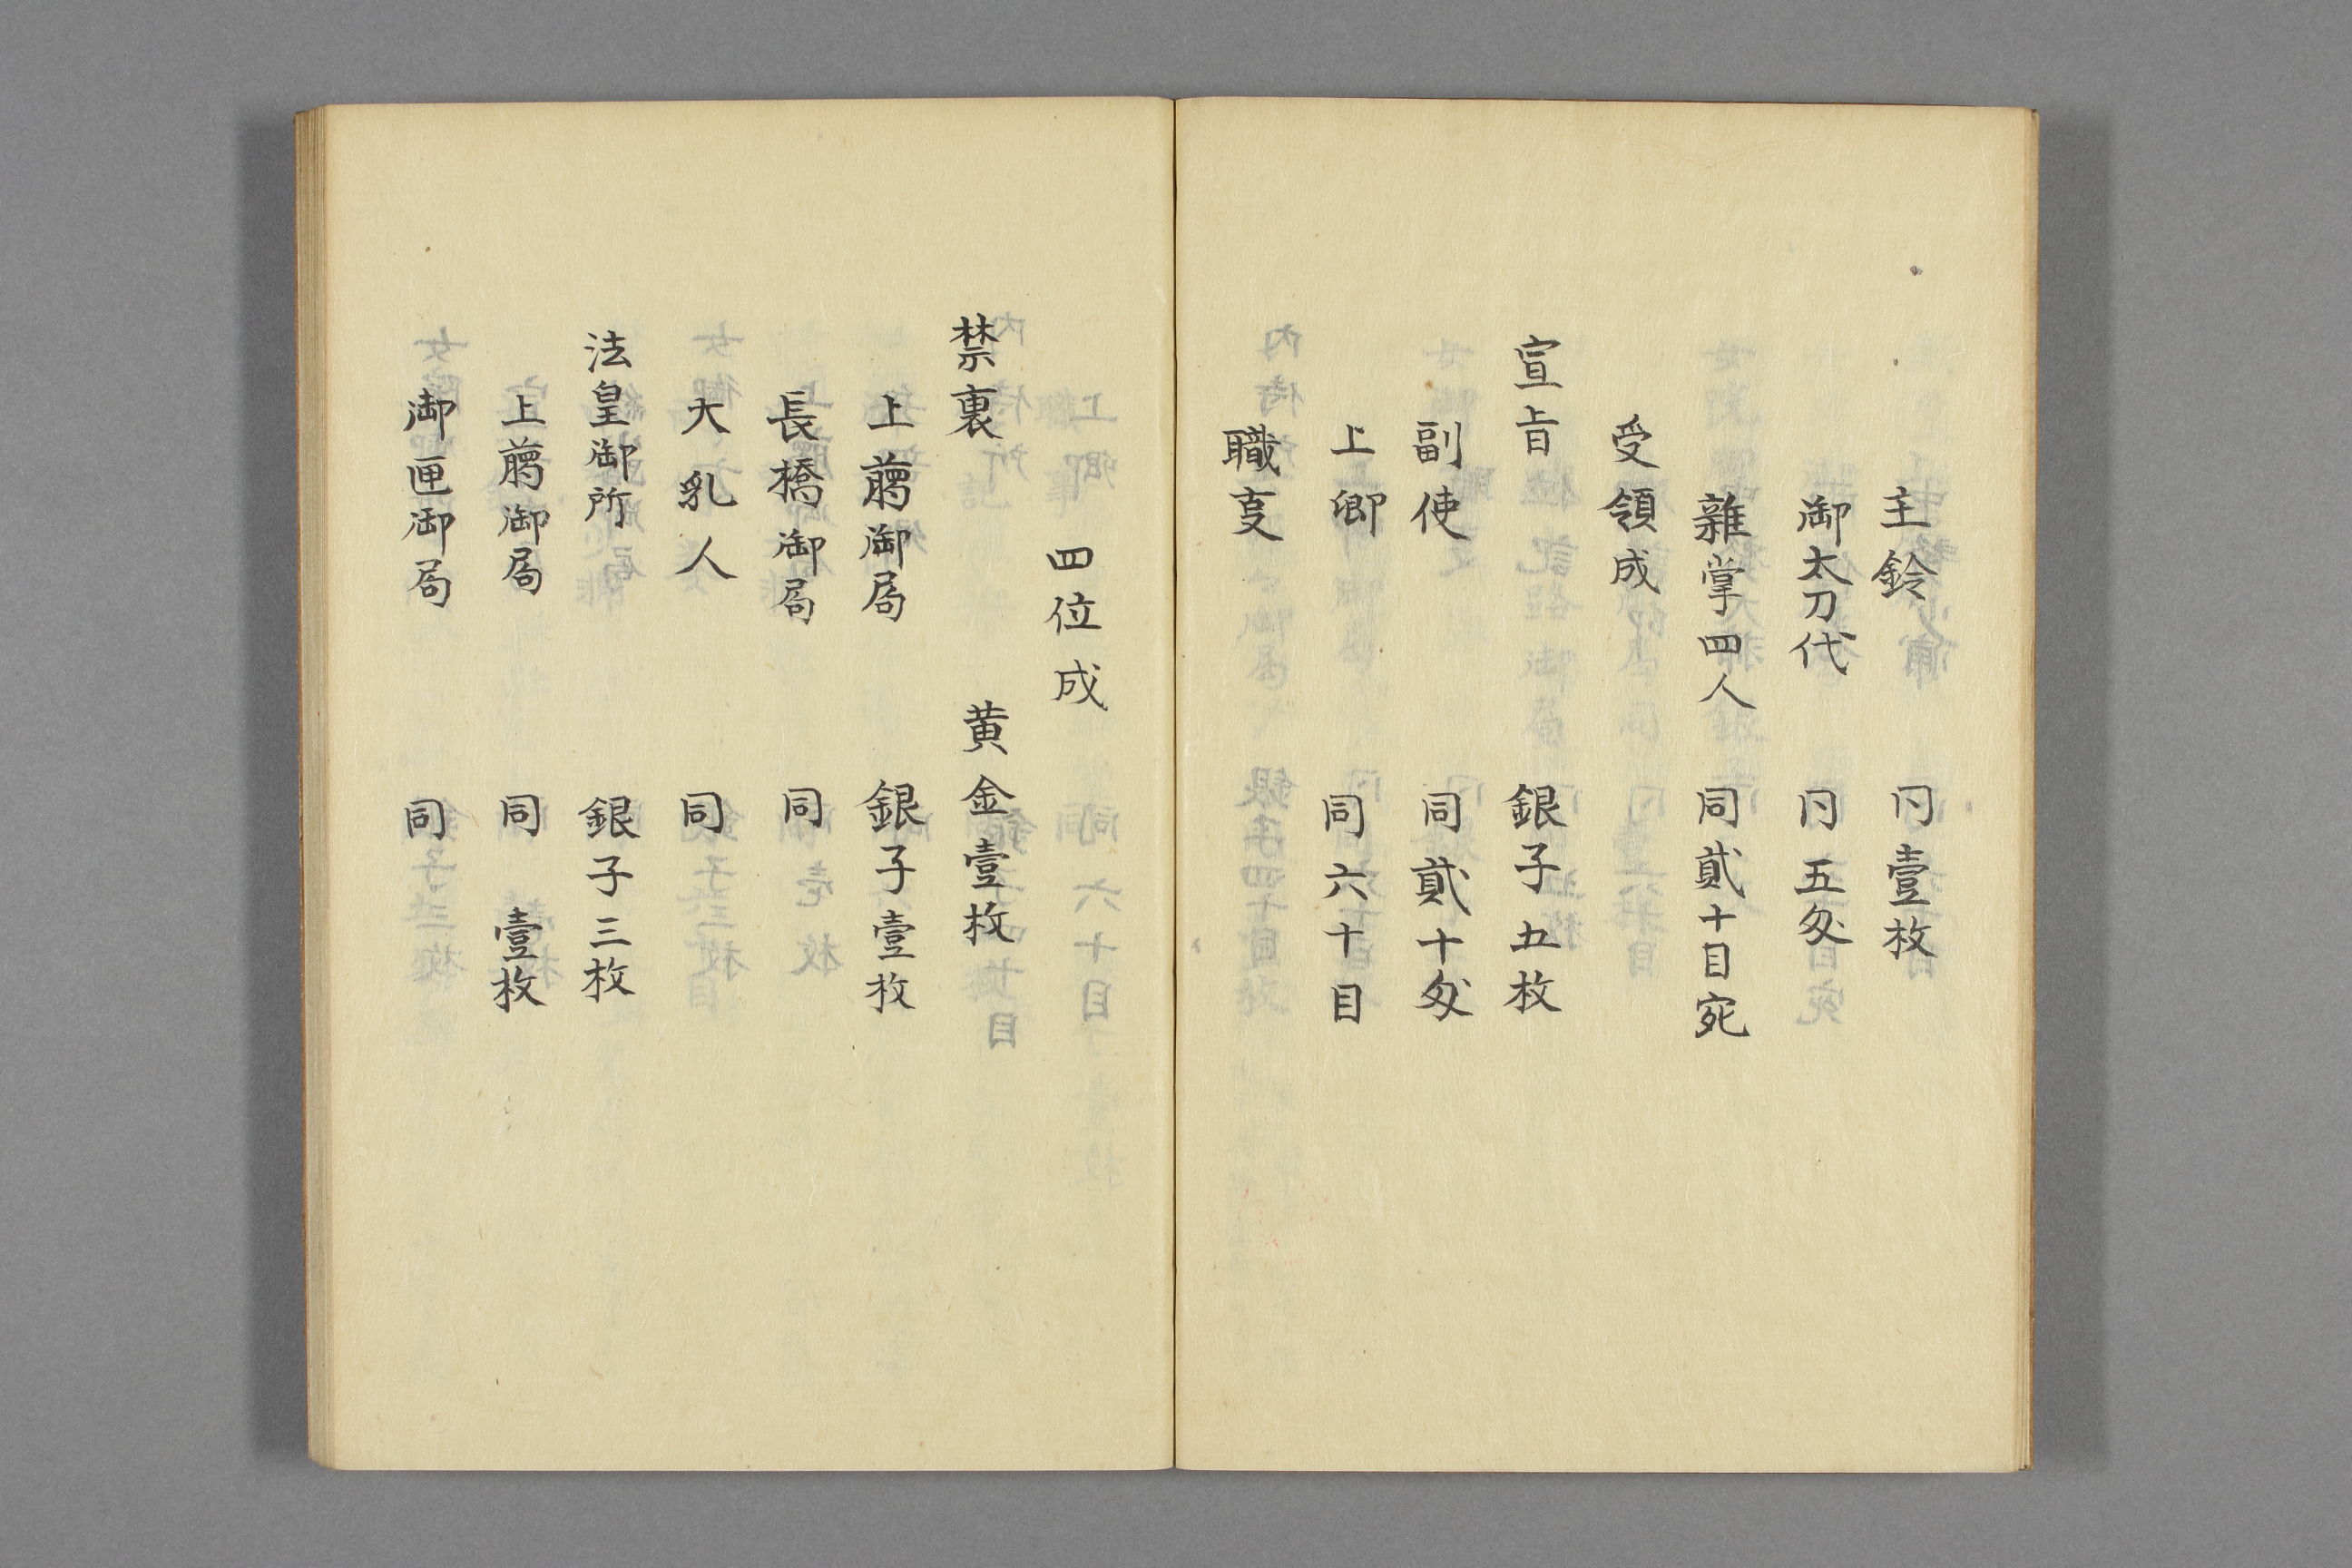 主鈴　同壹枚
御太刀代　同五匁
雜掌四人　同貳十目宛
受領成
宣旨　銀子五枚
副使　同貳十匁
上卿　同六十目
職叓
四位成
禁裏　黄金壹枚
上﨟御局　銀子壹枚
長橋御局　同
大乳人　同
法皇御所　銀子三枚
上﨟御局　同　壹枚
御匣御局　同